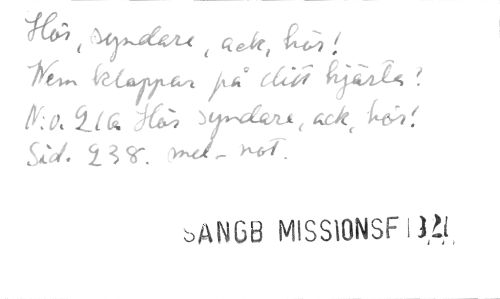 Hör, syndare, ack, hör!
Vem klappar på ditt hjärta?
N:o. 21a Hör syndare, ack, hör!
Sid. 238. mel- not.
SANGB MISSIONSF 1321